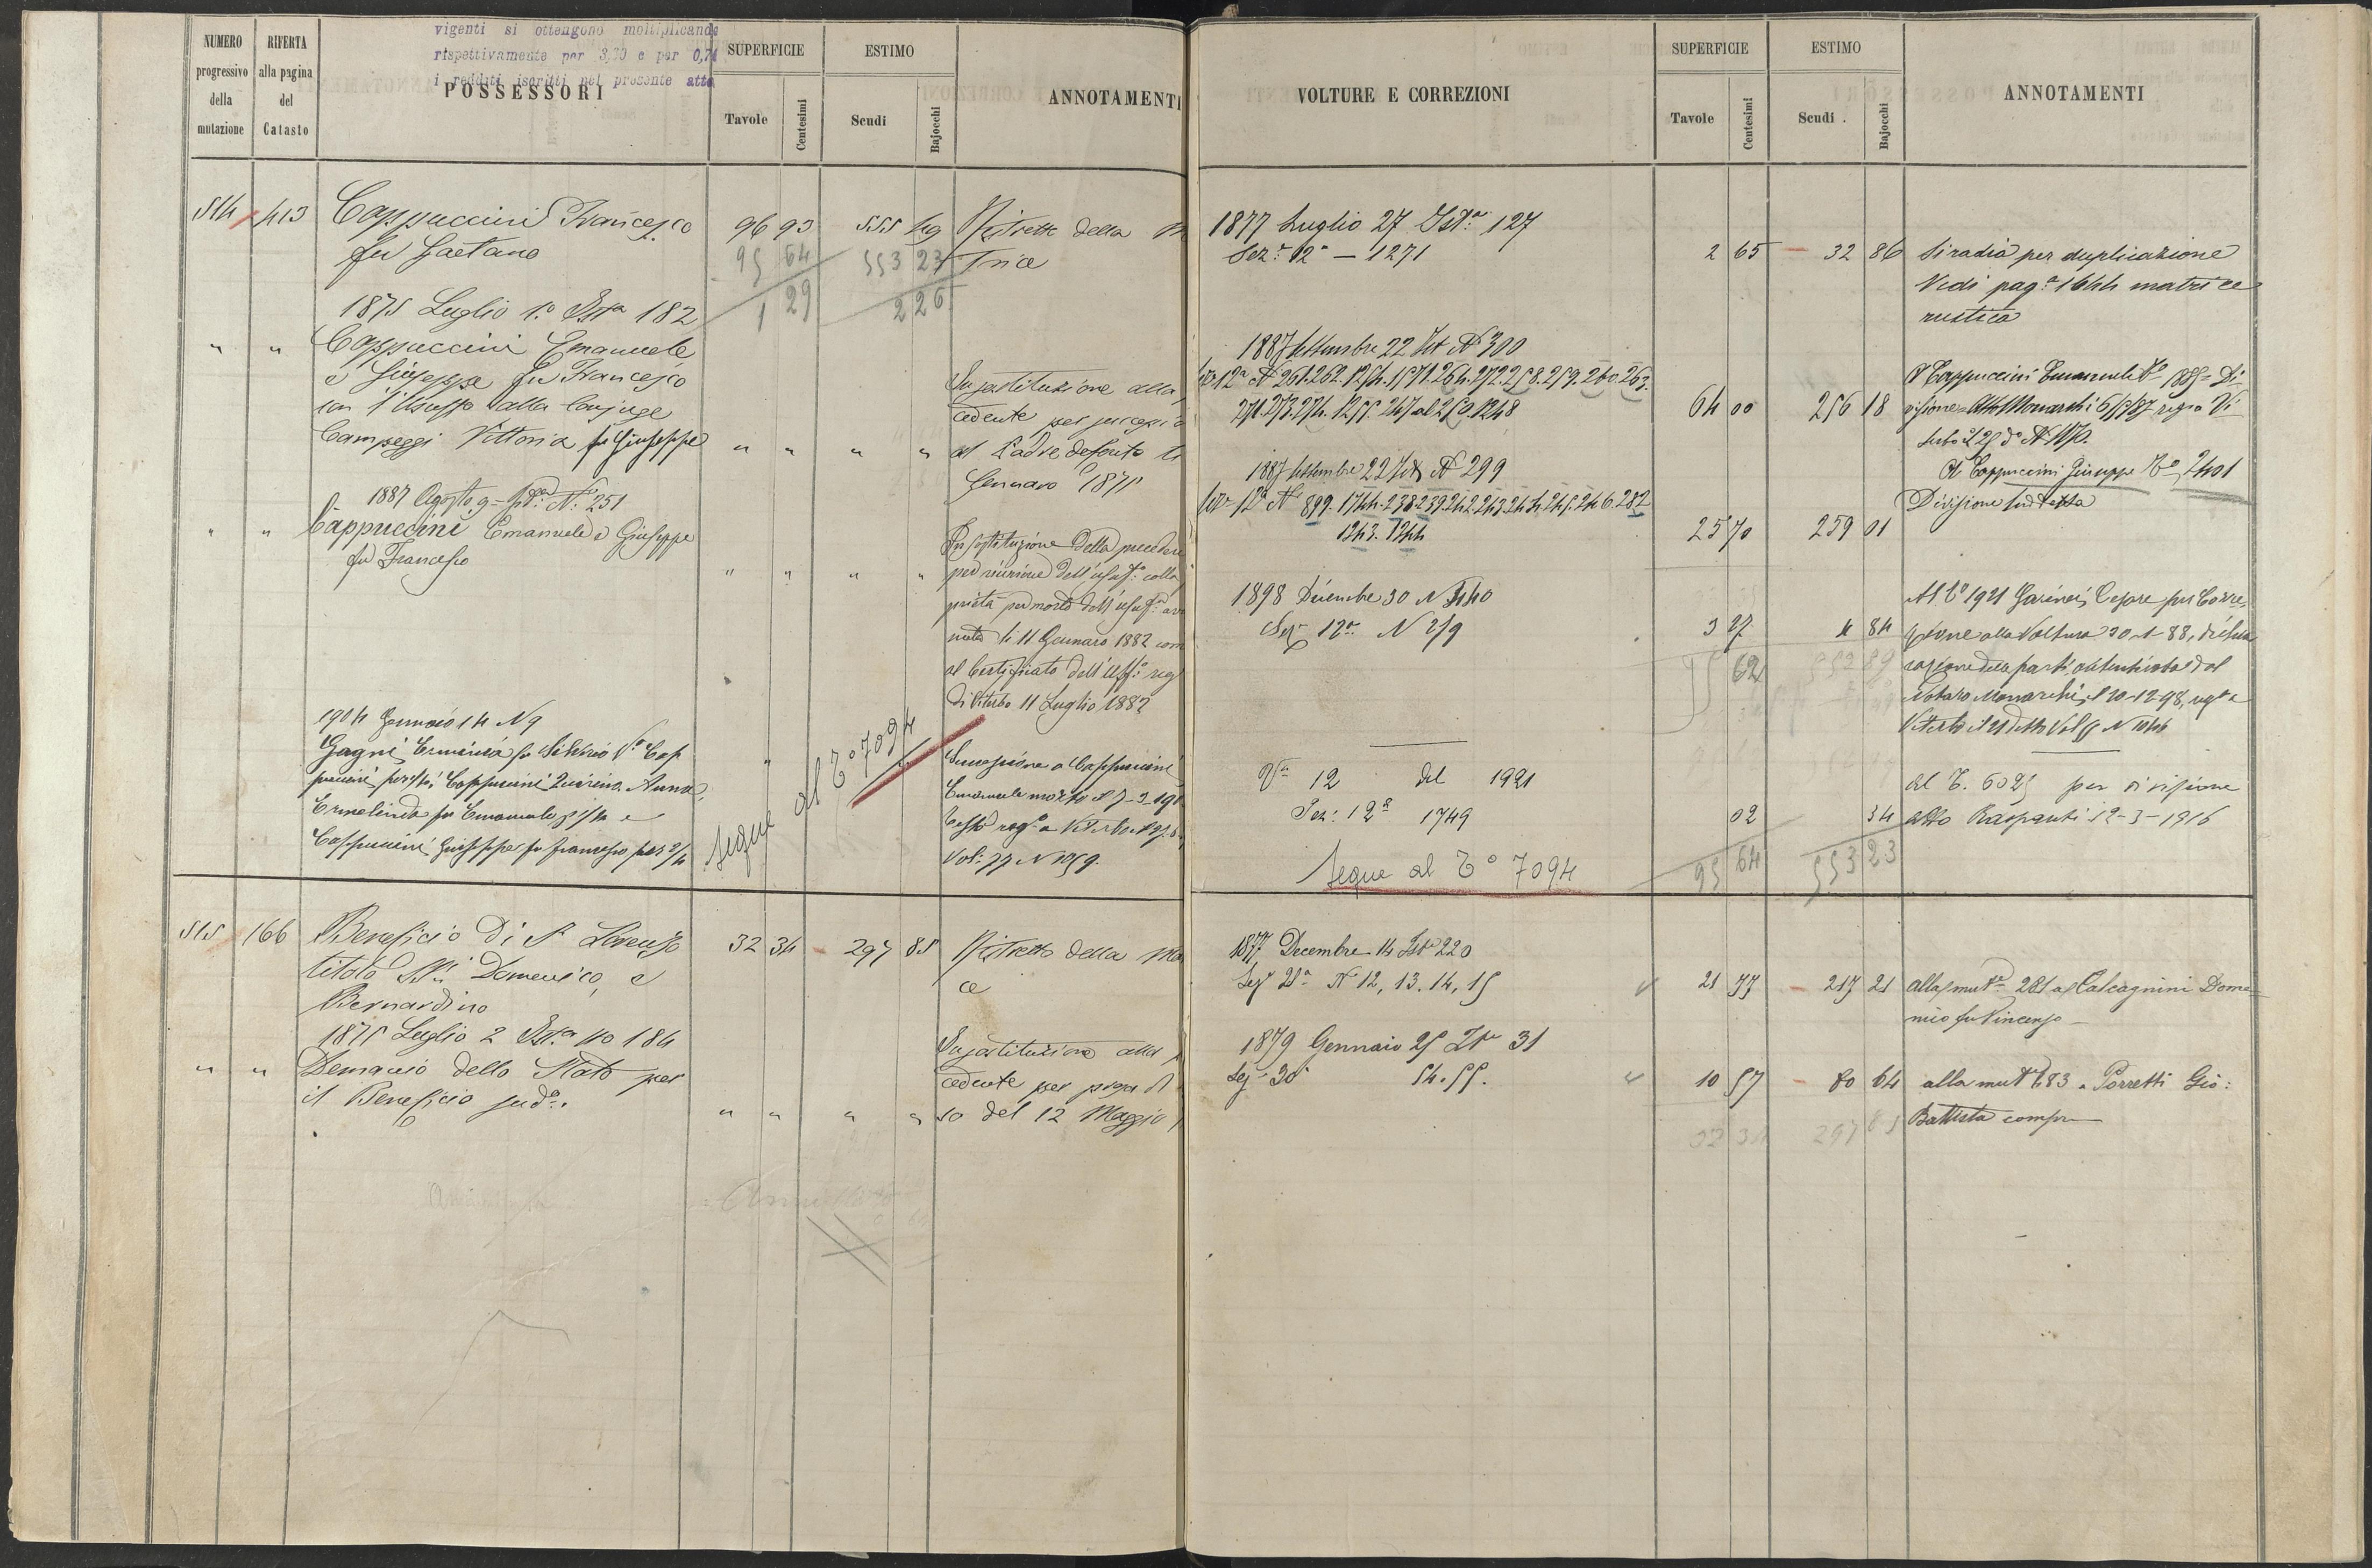 vigenti si ottengono moltiplicando
rispettivamente per 3,70 e per 0,74
i redditi iscritti nel presente atto
NUMERO progressivo della mutazione
RIFERTA alla pagina del Catasto
POSSESSORI
SUPERFICIE
Tavole Centesimi
ESTIMO
Scudi Bajocchi
ANNOTAMENTI
514 413 Cappuccini Francesco 96 93 555 49 Ristretto della M
fu Gaetano 95 64 553 23 trice
1 29 2 26
1875 Luglio 1.° Ist.a 182
" " Cappuccini Emanuele
e Giuseppe fu Francesco
con l'Usuf.o alla Conjuge
Campeggi Vittoria fu Giuseppe " " " "
In sostituzione alla
cedente per
al Padre defonto li
Gennaro 1875
1887 Agosto 9 N.° 251
" " Cappuccini Emanuele e Giuseppe
fu Francesco " " " "
In sostituzione della precedere
per riunione dell'usuf.o colla
prietà per morte dell'usuf.a av
nuta li 11 Gennaro 1882 com
al Certificato dell'Uff.o reg
di Viterbo 11 Luglio 1882
1904 Gennaio 14 N 9
Gagni Erminia fu Silverio V.a Cap
puccini, Cappuccini Quirino, Anna,
Ermelinda fu Emanuele e
Cappuccini Giuseppe fu Francesco per 2/4
Segue al T° 7094
Successione a Cappuccini
Emanuele morto il 7-3-190
reg.o a Viterbo il
Vol: 77 N 1059.
515 166 Beneficio di S. Lorenzo 32 34 297 85 Ristretto della Ma
titolo SS.i Domenico, e ce
Bernardino
1875 Luglio 2 Ist.a no 184
" " Demanio dello Stato per
il Beneficio sud.o. " " " "
In sostituzione alla p
cedente per presa
so del 12 Maggio
VOLTURE E CORREZIONI
SUPERFICIE
Tavole Centesimi
ESTIMO
Scudi Bajocchi
ANNOTAMENTI
1877 Luglio 27 Ist.a 127
Sez.e 12a — 1271 2 65 32 86 Si radia per duplicazione
Vedi pag.a 1644 matrice
rustica
1887 Settembre 22 Ist N° 300
Sez 12a N° 261.262.1254.1571.264.272.258.259.260.263.
271.273.274.1255.247 al 250.1248 64 00 256 18
A Cappuccini Emanuele T.o 1885 = Di
visione = Atto Monarchi 6/9/87 reg.o a Vi
terbo il 25 d.o
1887 Settembre 22 Ist N° 299
Sez 12a N° 899.1744.238.239.242.243.244.245.246.282
1243.1244 25 70 259 01
A Cappuccini Giuseppe T.o 2401
Divisione suddetta
1898 Dicembre 30 N 340
Sez.e 12a N 259 3 27 4 84
Al T.o 1921 Garinei Cesare per Corre
zione alla Voltura 30-1-88, dichia
razione delle parti autenticata dal
Notaro Monarchi il 20-12-98, reg.o a
Viterbo il
62 552 89
V.a 12 del 1921
Sez: 12a 1749 02 34
al T. 6025 per divisione
atto Raspanti 12-3-1916
95 64 553 23
Segue al T° 7094
1877 Decembre 14 Ist.a 220
Sez 21a N° 12, 13. 14, 15 21 77 217 21 alla mut.e 281 a Calcagnini Dome
nico fu Vincenzo
1879 Gennaio 25 Ist.a 31
Sez.e 30a 54. 55. 10 57 80 64 alla mut.e 683 a Porretti Gio:
32 34 297 85 Battista compra